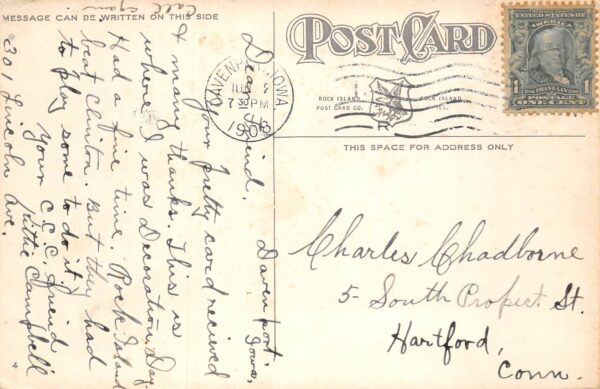 Call again
MESSAGE CAN BE WRITTEN ON THIS SIDE
Davenport,
Iowa,
Dear Friend.
Your pretty card recieved
& many thanks. This is
where I was Decoration Day
Had a fine time. Rock Island
beat Clinton. But they had
to play some to do it.
Your C.C.C. Friend
Lillie Campbell
301 Lincoln Ave.
POST CARD
ROCK ISLAND
POST CARD CO.
ROCK ISLAND
ILL.
DAVENPORT, IOWA
JUN
7 30 PM
UNITED STATES OF AMERICA
FRANKLIN
POSTAGE
ONE CENT
THIS SPACE FOR ADDRESS ONLY
Charles Chadborne
5- South Propect St.
Hartford,
Conn.